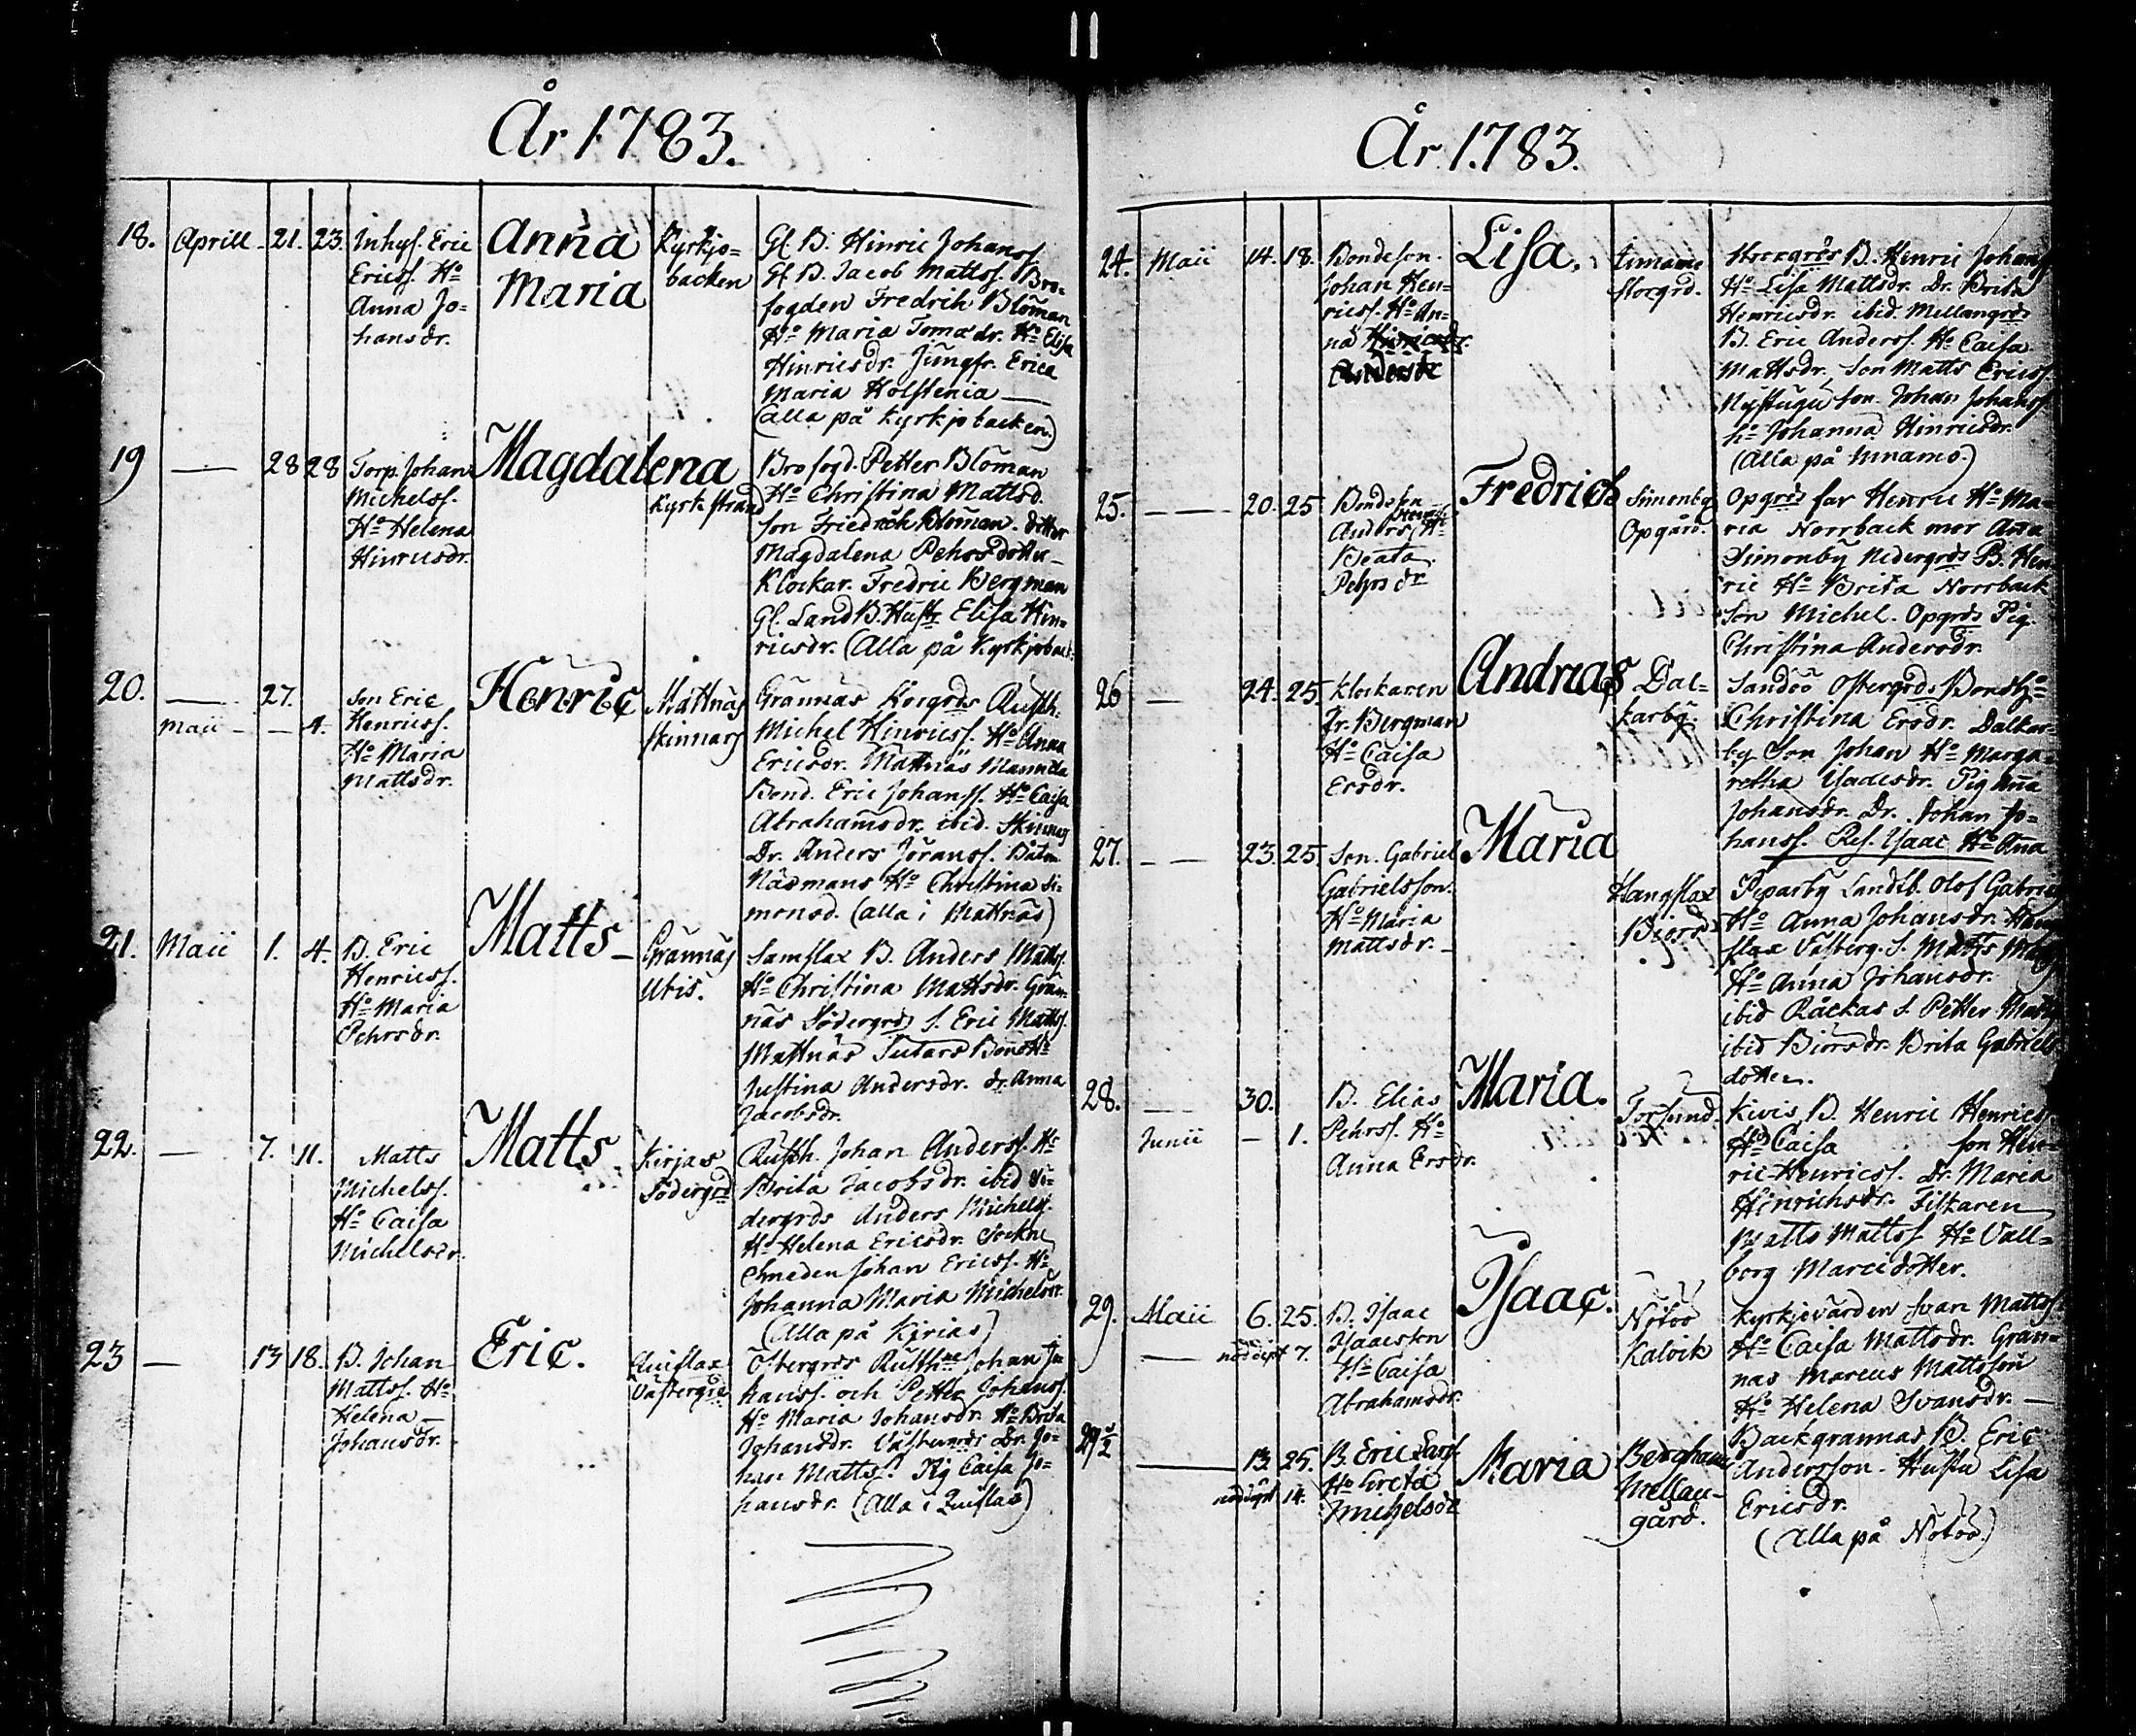 År 1783.
18. Aprill - 21. 23. Inhys. Eric
Ericss. Ho
Anna Jo=
hansdr.
Anna
Maria
Kyrkjo=
backen
Gl. B. Hinric Johanss.
Gl. B. Jacob Mattss. Bro-
fogden Fredrik Bloman
Ho Maria Toma dr. Ho Elisa
Hinricsdr. Jungfr. Erica
Maria Holstenia
(Alla på Kyrkjobacken.)
19 — 28 28 Torp. Johan
Michelss.
Ho Helena
Hinricsdr.
Magdalena
Kyrkstrand
Brofogd. Petter Bloman
Ho Christina Mattsd.
son Friedrich Bloman. dotter
Magdalena Pehrsdotter
Klockar. Fredric Bergman
Gl. Land B. Hust. Elisa Hin=
ricsdr. (Alla på Kyrkjobac
20. — 27.
Maii - - 4.
Son Eric
Henricss.
Ho Maria
Mattsdr.
Henric
Mattnäs
Skinnars
Grännäs Korgrds Rusth.
Michel Hinricss. Ho Anna
Ericsdr. Mattnäs Mannila
Bond. Eric Johanss. Ho Caisa
Abrahamsdr. ibid. Skinnars
Dr. Anders Jöranss. Båtsm
Näsmans Ho Christina Si=
monsd. (alla i Mattnäs)
21. Maii 1. 4. B. Eric
Henricss.
Ho Maria
Pehrsdr.
Matts
Grännäs
Utis.
Samslax B. Anders Mattss.
Ho Christina Mattsdr. Grän-
näs Södergrds S. Eric Mattss.
Mattnäs Sutars Bond Ho
Justina Andersdr. dr. Anna
Jacobsdr.
22. — 7. 11. Matts
Michelss.
Ho Caisa
Michelsdr.
Matts
Kirjais
Södergrd
Rusth. Johan Anderss. Ho
Brita Jacobsdr. ibid Sö-
dergrds Anders Michelss.
Ho Helena Ericsdr. Sockne
Smeden Johan Ericss. Ho
Johanna Maria Michelsdr.
(Alla på Kirjais)
23 — 13 18. B. Johan
Mattss. Ho
Helena
Johansdr.
Eric.
Quiflax
Västergrd
Östergrds Rusthne Johan Jo
hanss. och Petter Johanss.
Ho Maria Johansdr. Ho Brita
Johansdr. Västergrds Dr. Jo=
han Mattss. Pig Caisa Jo=
hansdr. (Alla i Quiflax)
År 1783.
24. Maii 14. 18. Bondeson
Johan Hen-
ricss. Ho An=
na
Lisa.
storgrd.
Storgrds B. Henric Johans
Ho Lisa Mattsdr. Dr. Brita
Henricsdr. ibid. Mellangrds
B. Eric Anderss. Ho Caisa
Mattsdr. Son Matts Ericss.
Nystugu son. Johan Johanss.
ho Johanna Hinricsdr.
(Alla på )
25. — 20. 25 Bondeson
Anders Ho
Beata
Pehrsdr
Fredrich
Simonby
Opgård.
Opgrds far Henric Ho Ma-
ria Norrback mor Anna
Simonby Nedergrds B. Hen
ric Ho Brita Norrback
son Michel. Opgrds Pig.
Christina Andersdr.
26 — 24. 25. Klockaren
Fr. Bergman
Ho Caisa
Ersdr.
Andreas
Dal-
karby.
Sandöö Östergrds Bond Ho
Christina Ersdr. Dalkar-
by Son Johan Ho Marga-
retha Isacsdr. Pig Anna
Johansdr. Dr. Johan Jo=
hanss. Res. Isaac Ho Anna
27. — — 23. 25. Son. Gabriel
Gabrielsson.
Ho Maria
Mattsdr.
Maria
Hangslax
Biörs
Piparby Landtb. Olof Gabriel
Ho Anna Johansdr. Hang
slax Västerg. S. Matts Matts
Ho Anna Johansdr.
ibid Råckas S. Petter Matts
ibid Biörs dr. Brita Gabriels
dotter.
28. — 30.
Junii — 1.
B. Elias
Pehrss. Ho
Anna Ersdr.
Maria.
Torsund.
Kivis B. Henric Henricss
Ho Caisa son Hen=
ric Henricss. Dr. Maria
Hinrichsdr. Fiskaren
Matts Mattss. Ho Vall=
borg Marcidotter.
29. Maii 6. 25.
nöddöpt 7.
B. Isaac
Isaacsson
Ho Caisa
Abrahamsdr.
Isaac.
Nötöö
Kalvik
Kyrkjevärden Ivan Mattss.
Ho Caisa Mattsdr. Gran=
nas Marcus Mattsson
Ho Helena Ivansdr. —
Backgrannas B. Eric
Andersson - Hustru Lisa
Ericsdr.
(Alla på Nötöö.)
29 1/2
— 13. 25.
nöddöpt 14.
B. Eric
Ho Greta
Michelsdr
Maria
Berghamn
Mellan-
gård.